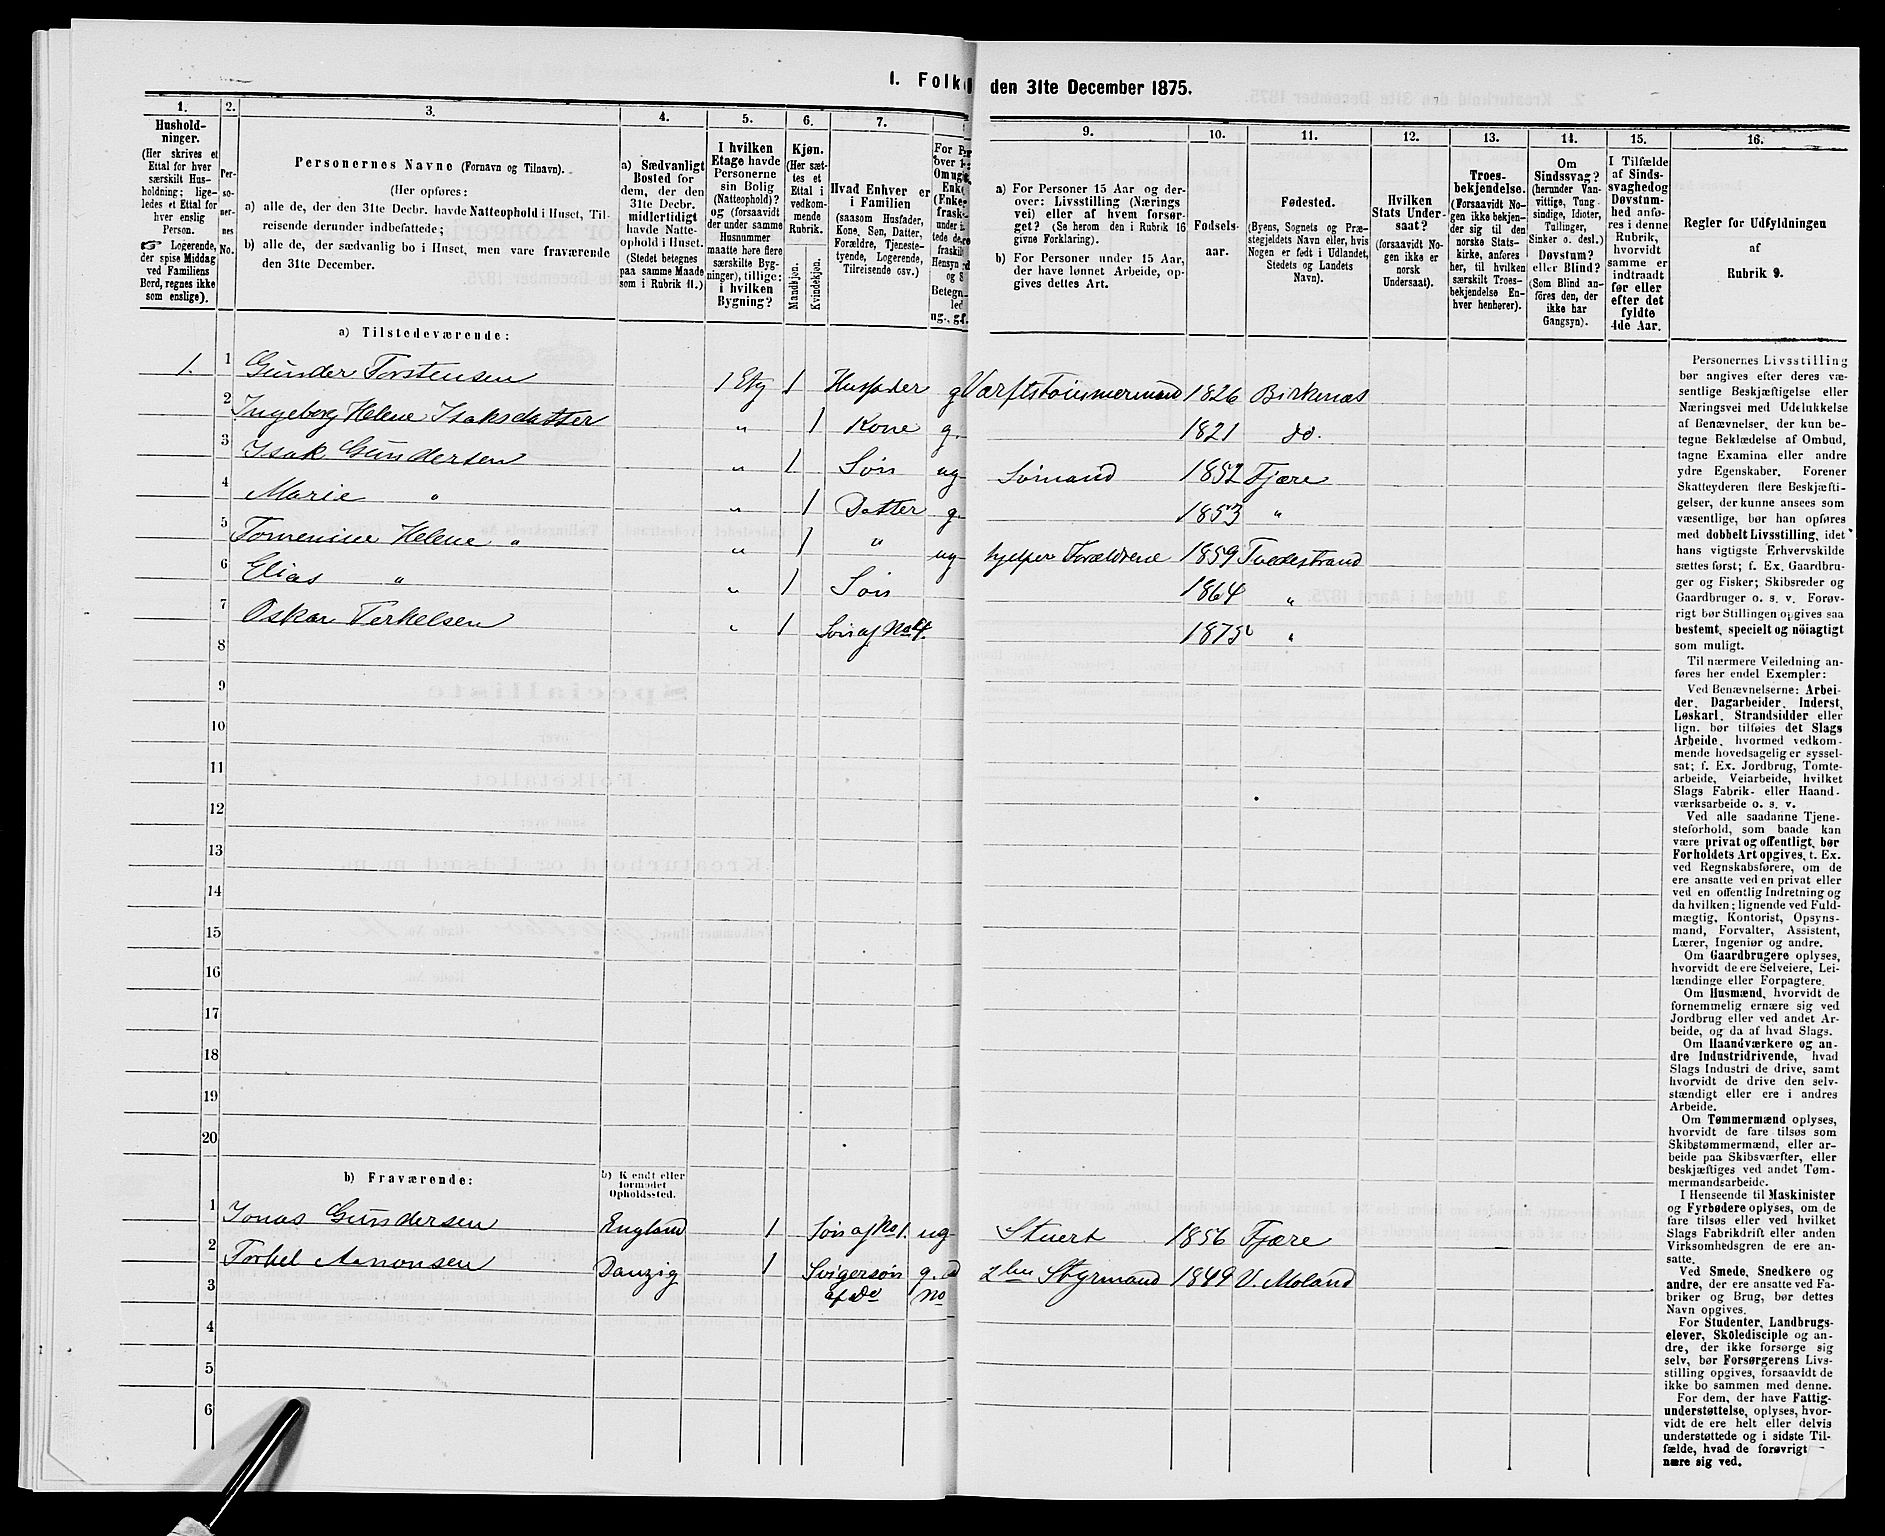 I. Folk den 31te December 1875.
1. 2. 3. 4. 5. 6. 7. 9. 10. 11. 12. 13. 14. 15. 16.
Hushold-
ninger.
(Her skrives et
Ettal for hver
særskilt Hus-
holdning; lige-
ledes et Ettal for
hver enslig
Person.
☞ Logerende,
der spise Middag
ved Familiens
Bord, regnes ikke
som enslige).
Per-
so-
ner-
nes
No.
Personernes Navne (Fornavn og Tilnavn).
(Her opføres:
a) alle de, der den 31te Decbr. havde Natteophold i Huset, Til-
reisende derunder indbefattede;
b) alle de, der sædvanlig bo i Huset, men vare fraværende
den 31te December.
a) Sædvanligt
Bosted for
dem, der den
31te Decbr.
midlertidigt
havde Natte-
ophold i Huset.
(Stedet betegnes
paa samme Maade
som i Rubrik 11.)
I hvilken
Etage havde
Personerne
sin Bolig
(Natteophold)?
og (forsaavidt
der under samme
Husnummer
maatte høre flere
særskilte Byg-
ninger), tillige:
i hvilken
Bygning?
Kjøn.
(Her sæt-
tes et
Ettal i
vedkom-
mende
Rubrik.
Mandkjøn.
Kvindekjøn.
Hvad Enhver er
i Familien
(saasom Husfader,
Kone, Søn, Datter,
Forældre, Tjeneste-
tyende, Logerende,
Tilreisende osv.)
a) For Personer 15 Aar og der-
over: Livsstilling (Nærings
vei) eller af hvem forsør-
get? (Se herom den i Rubrik 16
givne Forklaring).
b) For Personer under 15 Aar,
der have lønnet Arbeide, op-
gives dettes Art.
Fødsels-
aar.
Fødested.
(Byens, Sognets og Præ-
stegjeldets Navn eller, hvis
Nogen er født i Udlandet,
Stedets og Landets
Navn).
Hvilken
Stats Under-
saat?
(forsaavidt No-
gen ikke er
norsk
Undersaat).
Troes-
bekjendelse.
(Forsaavidt No-
gen ikke bekjen-
der sig til den
norske Stats-
kirke, anføres
her, til hvilken
særskilt Troes-
bekjendelse En-
hver henhører).
Om
Sindssvag?
(herunder Van-
vittige, Tung
sindige, Idioter,
Tullinger,
Sinker o. desl.)
Døvstum?
eller Blind?
(Som Blind an-
føres den, der
ikke har
Gangsyn).
I Tilfælde
af Sinds-
svaghed og
Døvstum-
hed anfø-
res i denne
Rubrik,
hvorvidt
samme er
indtraadt
før eller
efter det
fyldte
4de Aar.
Regler for Udfyldningen
af
Rubrik 9.
a) Tilstedeværende:
1. 1 Gunder Torstensen 1 Etg 1 Husfader g Værftstømmermand 1826 Birkenæs
2 Ingeborg Helene Isaksdatter " 1 Kone g. 1821 do.
3 Isak Gundersen " 1 Søn ug Sømand 1852 Fjære
4 Marie " " 1 Datter g. 1853 "
5 Tomenine Helene " " 1 " ug hjelper Forældrene 1859 Tvedestrand
6 Elias " " 1 Søn 1864 "
7 Oskar Terkelsen " 1 Søn af No 4. 1875 "
8
9
10
11
12
13
14
15
16
17
18
19
20
b) Fraværende:
b) Kendt eller
formodet
Opholdssted.
1 Jonas Gundersen England 1 Søn af No 1. ug Stuert 1856 Fjære
2 Torkel Aanonsen Danzig 1 Svigersøn g. 2den Styrmand 1849 V. Moland
3 af Do No
4
5
6
Personernes Livsstilling
bør angives efter deres væ-
sentlige Beskjæftigelse eller
Næringsvei med Udelukkelse
af Benævnelser, der kun be-
tegne Beklædelse af Ombud,
tagne Examina eller andre
ydre Egenskaber. Forener
Skatteyderen flere Beskjæfti-
gelser, der kunne ansees som
væsentlige, bør han opføres
med dobbelt Livsstilling, idet
hans vigtigste Erhvervskilde
sættes først; f. Ex. Gaardbru-
ger og Fisker; Skibsreder og
Gaardbruger o. s. v. Forøv-
rigt bør Stillingen opgives saa
bestemt, specielt og nöiagtigt
som muligt.
Til nærmere Veiledning an-
føres her endel Exempler:
Ved Benævnelserne: Arbei-
der, Dagarbeider, Inderst,
Løskarl, Strandsidder eller
lign. bør tilføies det Slags
Arbeide, hvormed vedkom-
mende hovedsagelig er syssel-
sat; f. Ex. Jordbrug, Tomte-
arbeide, Veiarbeide, hvilket
Slags Fabrik- eller Haand-
værksarbeide o. s. v.
Ved alle saadanne Tjene-
steforhold, som baade kan
være privat og offentligt, bør
Forholdets Art opgives, t. Ex.
ved Regnskabsførere, om de
ere ansatte ved en privat eller
ved en offentlig Indretning og
da hvilken; lignende ved Fuld-
mægtig, Kontorist, Opsyns-
mand, Forvalter, Assistent,
Lærer, Ingeniør og andre.
Om Gaardbrugere oplyses,
hvorvidt de ere Selveiere, Lei-
lændinge eller Forpagtere.
Om Husmænd, hvorvidt de
fornemmelig ernære sig ved
Jordbrug eller ved andet Ar-
beide, og da af hvad Slags.
Om Haandværkere og an-
dre Industridrivende, hvad
Slags Industri de drive, samt
hvorvidt de drive den selv-
stændigt eller ere i andres
Arbeide.
Om Tømmermænd oplyses,
hvorvidt de fare tilsøs som
Skibstømmermænd, eller ar-
beide paa Skibsværfter, eller
beskjæftiges ved andet Tøm-
mermandsarbeide.
I Henseende til Maskinister
og Fyrbødere oplyses, om de
fare tilsøs eller ved hvilket
Slags Fabrikdrift eller anden
Virksomhedsgren de ere an-
satte.
Ved Smede, Snedkere og
andre, der ere ansatte ved Fa-
briker og Brug, bør dettes
Navn opgives.
For Studenter, Landbrugs-
elever, Skoledisciple og an-
dre, der ikke forsørge sig
selv, bør Forsørgerens Livs-
stilling opgives, forsaavidt de
ikke bo sammen med denne.
For dem, der have Fattig-
understøttelse, oplyses, hvor-
vidt de ere helt eller delvis
understøttede og i sidste Til-
fælde, hvad de forøvrigt
nære sig ved.